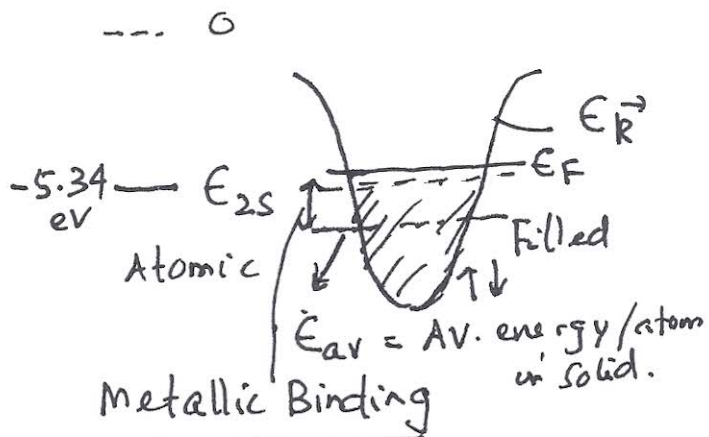 --- 0
ϵk⃗
ϵF
-5.34 eV
ϵ2S
Filled
Atomic
↑↓
ϵav = Av. energy/atom
in solid.
Metallic Binding